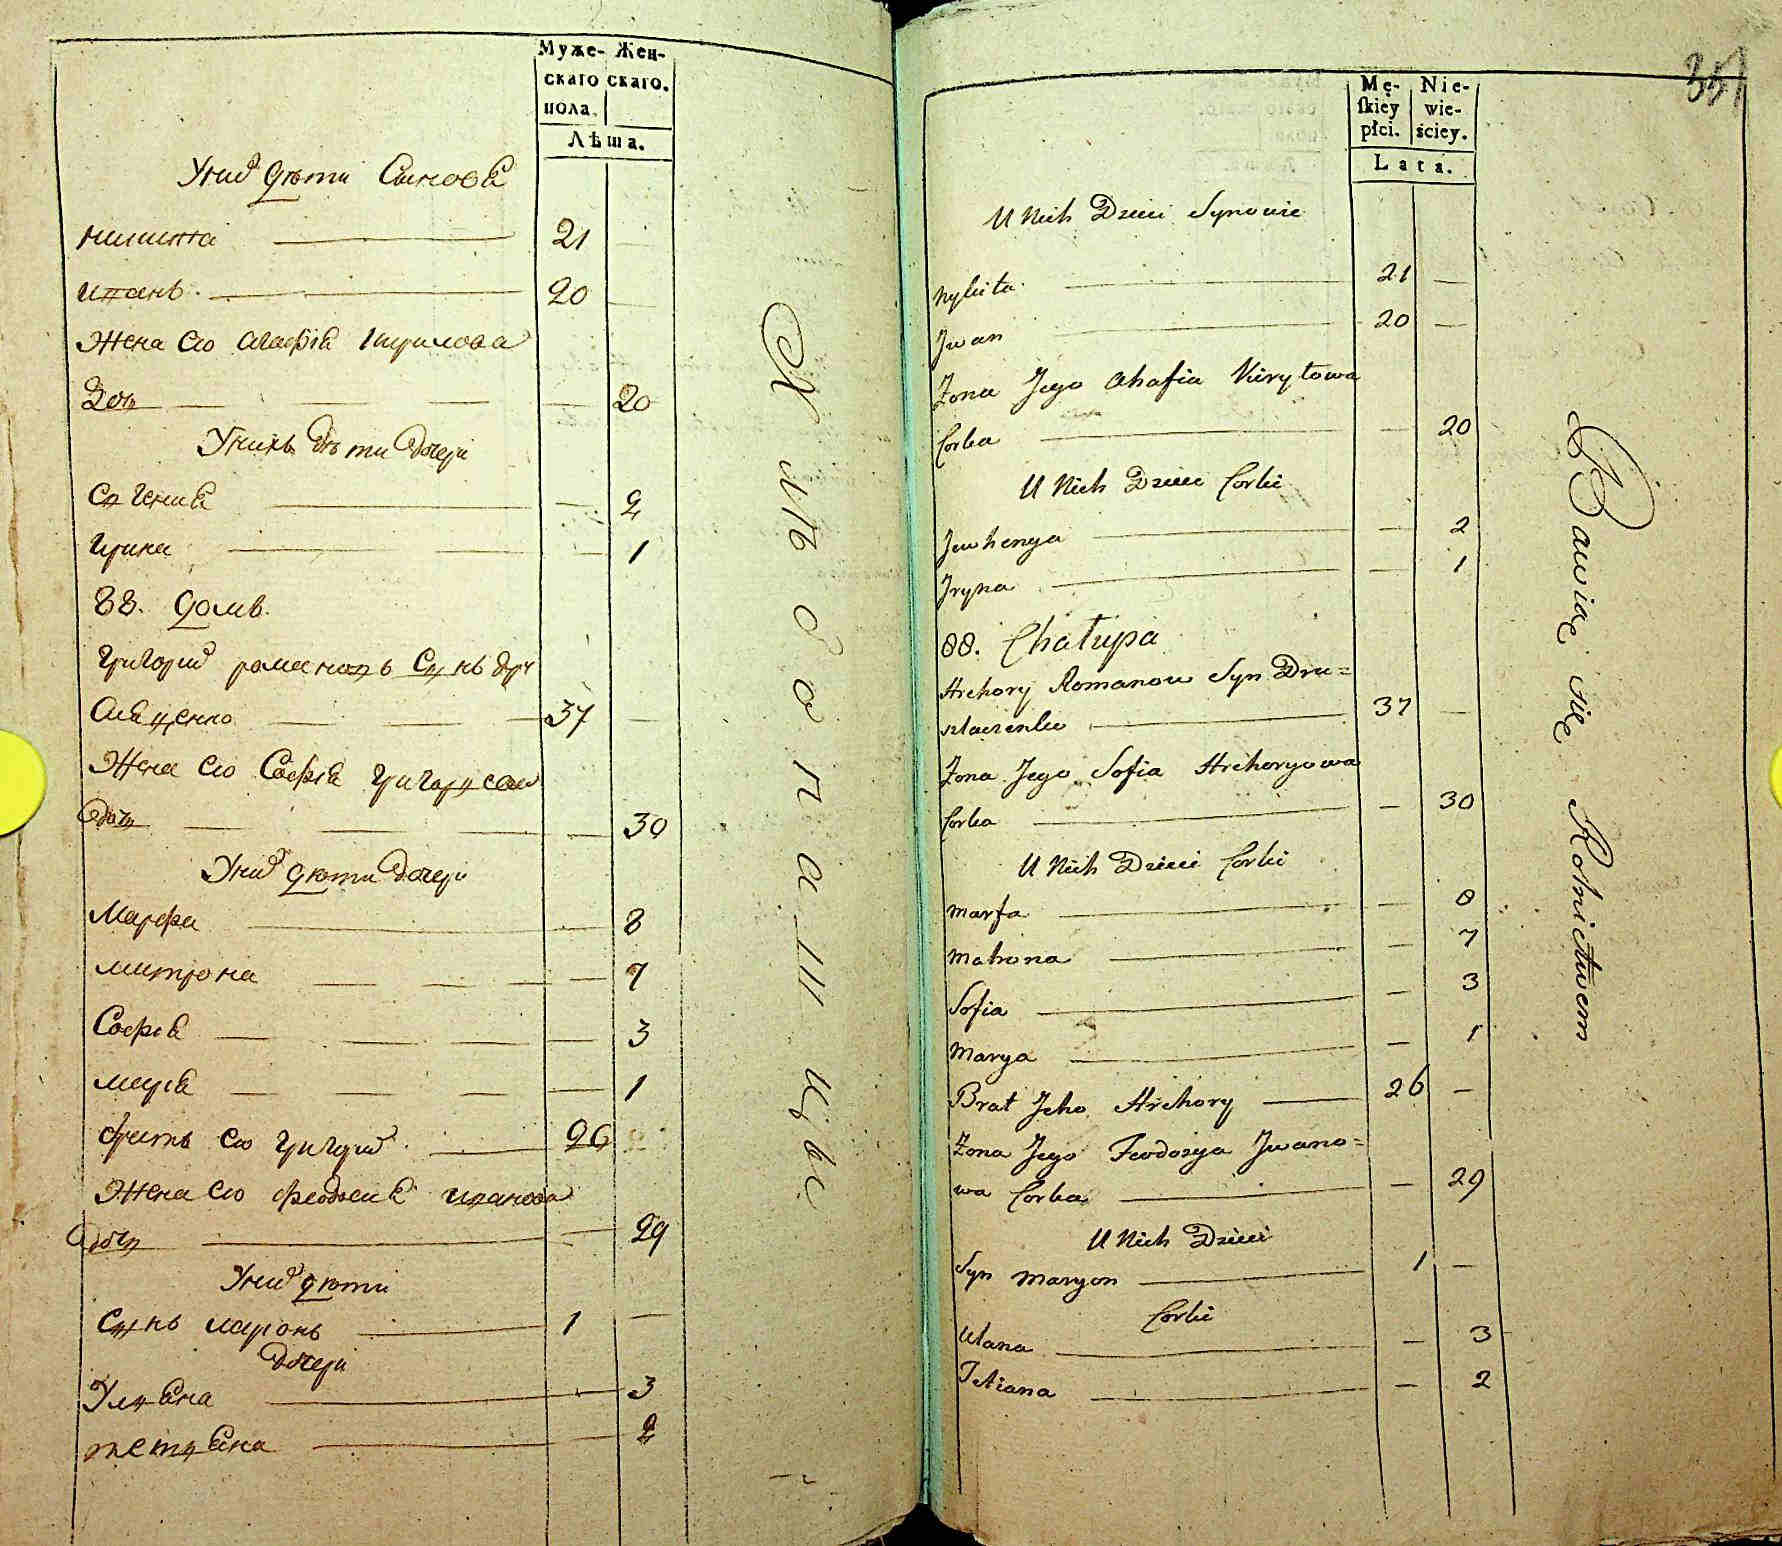 Муже- Жен-
скаго скаго.
пола.
Лѣта.
У ний дѣти Синовя
Никита 21
Иванъ 20
Жена его Агафія Кирилова
Дочь 20
У нихъ дѣти дочери
Евгения 2
Ирина 1
88. домъ.
Григорий романовъ Сынъ дру
жена его Софія григорьева
дочь 30
У ний дѣти дочери
Марфа 8
матрона 7
Софія 3
марія 1
братъ его григорий 26
Жена его феодосия иванова
дочь 29
У ний дѣти
Сынъ марионъ 1
дочери
Улияна 3
тетяна 2
Хлѣбопашцы
351
Mę- Nie-
skiey wie-
płci. ściey.
Lata.
U Nich Dzieci Synowie
Nykita 21
Jwan 20
Żona Jego Ahafia Kiryłowa
Corka 20
U Nich Dzieci Corki
Jewhenya 2
Jryna 1
88. Chałupa
Hrehory Romanow Syn Dru=
37
Żona Jego Sofia Hrehoryowa
Corka 30
U Nich Dzieci Corki
Marfa 8
Matrona 7
Sofia 3
Marya 1
Brat Jeho Hrehory 26
Żona Jego Feodozya Jwano=
wa Corka 29
U Nich Dzieci
Syn Maryon 1
Corki
Ulana 3
Tetiana 2
Bawią się Rolnictwem